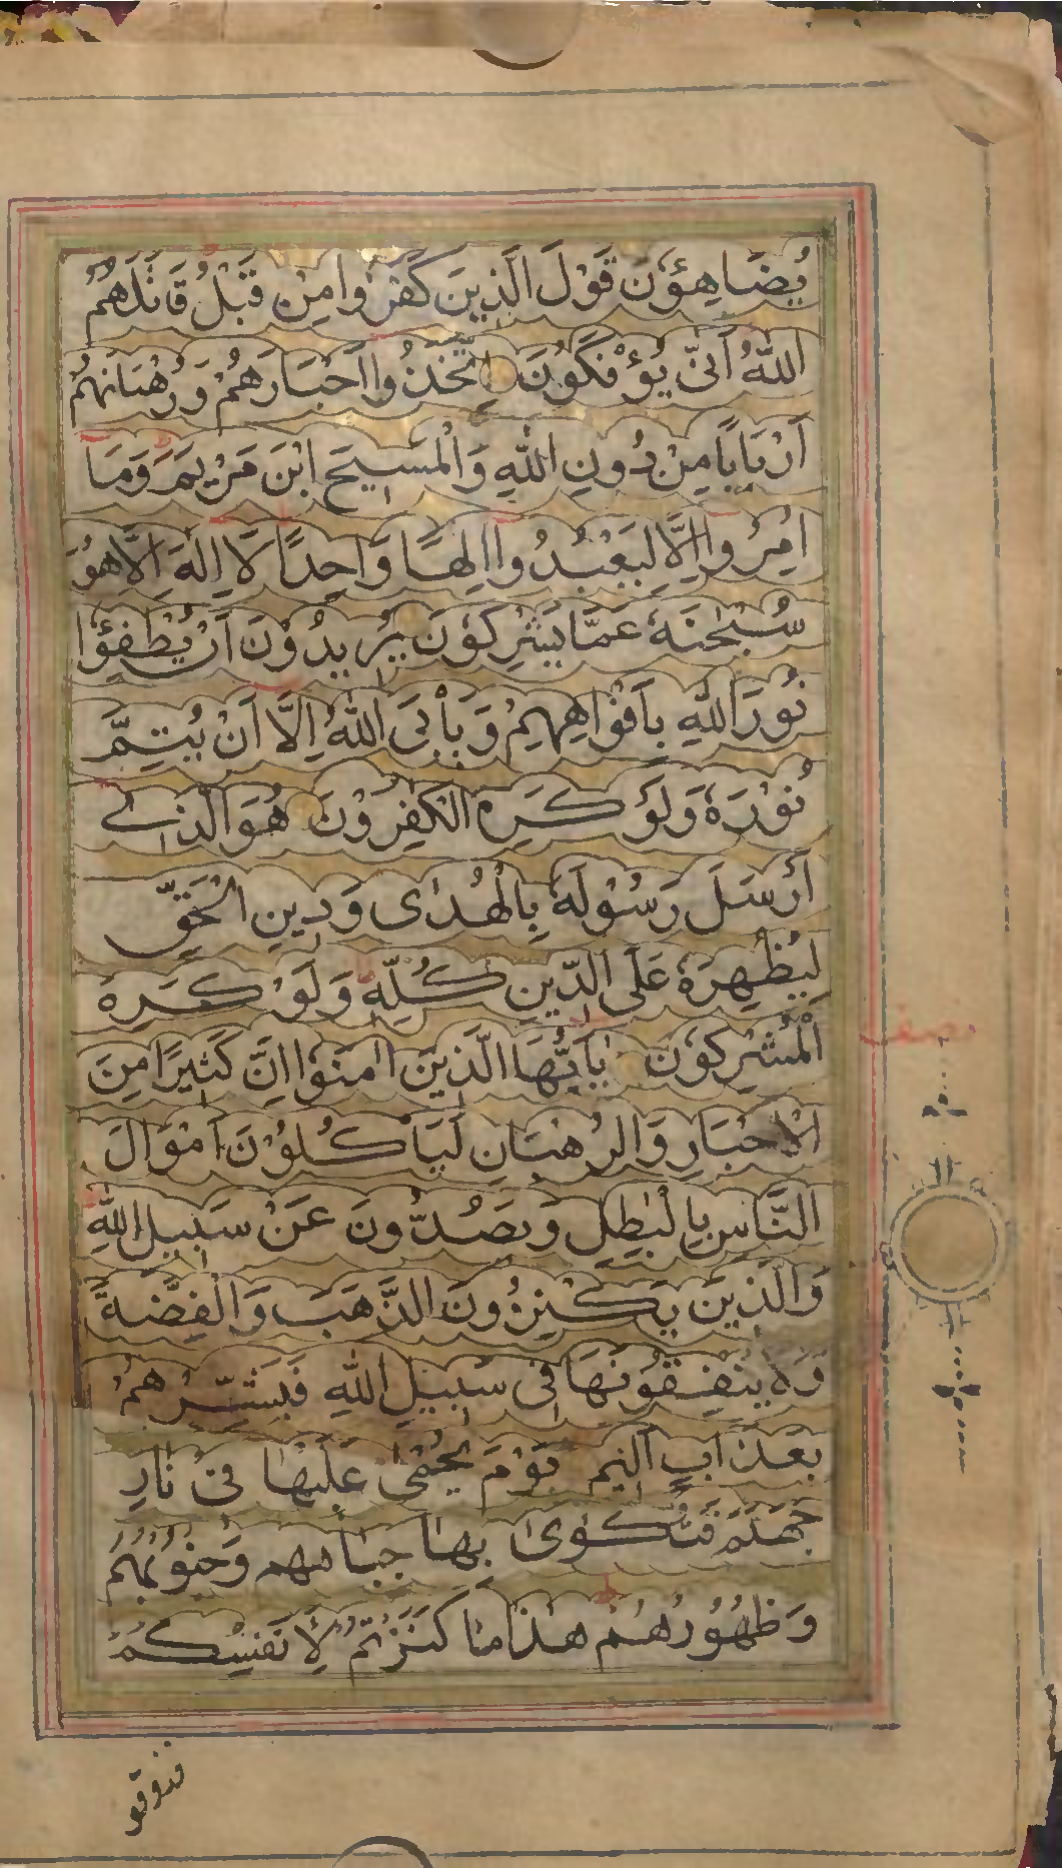 يُضَاهِؤُنَ قَوْلَ الَّذِينَ كَفَرُوا مِنْ قَبْلُ قَاتَلَهُمُ
اللَّهُ اَنّٰى يُؤْفَكُونَ اِتَّخَذُوا اَحْبَارَهُمْ وَرُهْبَانَهُمْ
اَرْبَابًا مِنْ دُونِ اللَّهِ وَالْمَسِيحَ ابْنَ مَرْيَمَ وَمَا
اُمِرُوا اِلَّا لِيَعْبُدُوا اِلٰهًا وَاحِدًا لَا اِلٰهَ اِلَّا هُوَ
سُبْحٰنَهُ عَمَّا يُشْرِكُونَ يُرِيدُوْنَ اَنْ يُطْفِؤُا
نُورَ اللَّهِ بِاَفْوَاهِهِمْ وَيَاْبَى اللَّهُ اِلَّا اَنْ يُتِمَّ
نُوْرَهُ وَلَوْ كَرِهَ الْكٰفِرُوْنَ هُوَ الَّذِى
اَرْسَلَ رَسُوْلَهُ بِالْهُدٰى وَدِينِ الْحَقِّ
لِيُظْهِرَهُ عَلَى الدِّينِ كُلِّهِ وَلَوْ كَرِهَ
الْمُشْرِكُوْنَ يٰاَيُّهَا الَّذِينَ اٰمَنُوا اِنَّ كَثِيرًا مِنَ
الْاَحْبَارِ وَالرُّهْبَانِ لَيَاْكُلُوْنَ اَمْوَالَ
النَّاسِ بِالْبٰطِلِ وَيَصُدُّونَ عَنْ سَبِيلِ اللَّهِ
وَالَّذِينَ يَكْنِزُونَ الذَّهَبَ وَالْفِضَّةَ
وَلَا يُنْفِقُوْنَهَا فِى سَبِيلِ اللَّهِ فَبَشِّرْهُمْ
بِعَذَابٍ اَلِيمٍ يَوْمَ يُحْمٰى عَلَيْهَا فِى نَارِ
جَهَنَّمَ فَتُكْوٰى بِهَا جِبَاهُهُمْ وَجُنُوْبُهُمْ
وَظُهُوْرُهُمْ هٰذَا مَا كَنَزْتُمْ لِاَنْفُسِكُمْ
نصف
فذوقو